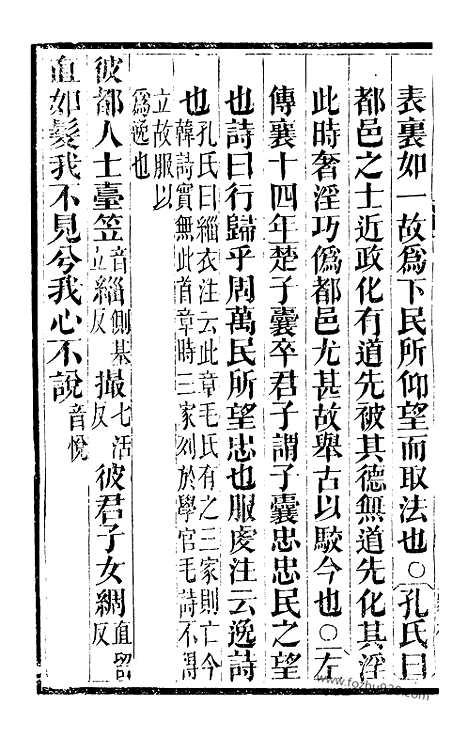 表裏如一故爲下民所仰望而取法也○孔氏曰
都邑之士近政化有道先被其德無道先化其淫
此時奢淫巧僞都邑尤甚故舉古以駮今也○左
傳襄十四年楚子囊卒君子謂子囊忠忠民之望
也詩曰行歸乎周萬民所望忠也服虔注云逸詩
也孔氏曰緇衣注云此章毛氏有之三家則亡今
韓詩實無此首章時三家列於學官毛詩不得
立故服以
爲逸也
彼都人士臺笠音立緇側基反撮七活反彼君子女綢直留反
直如髮我不見兮我心不說音悅
www.fozhu920.com